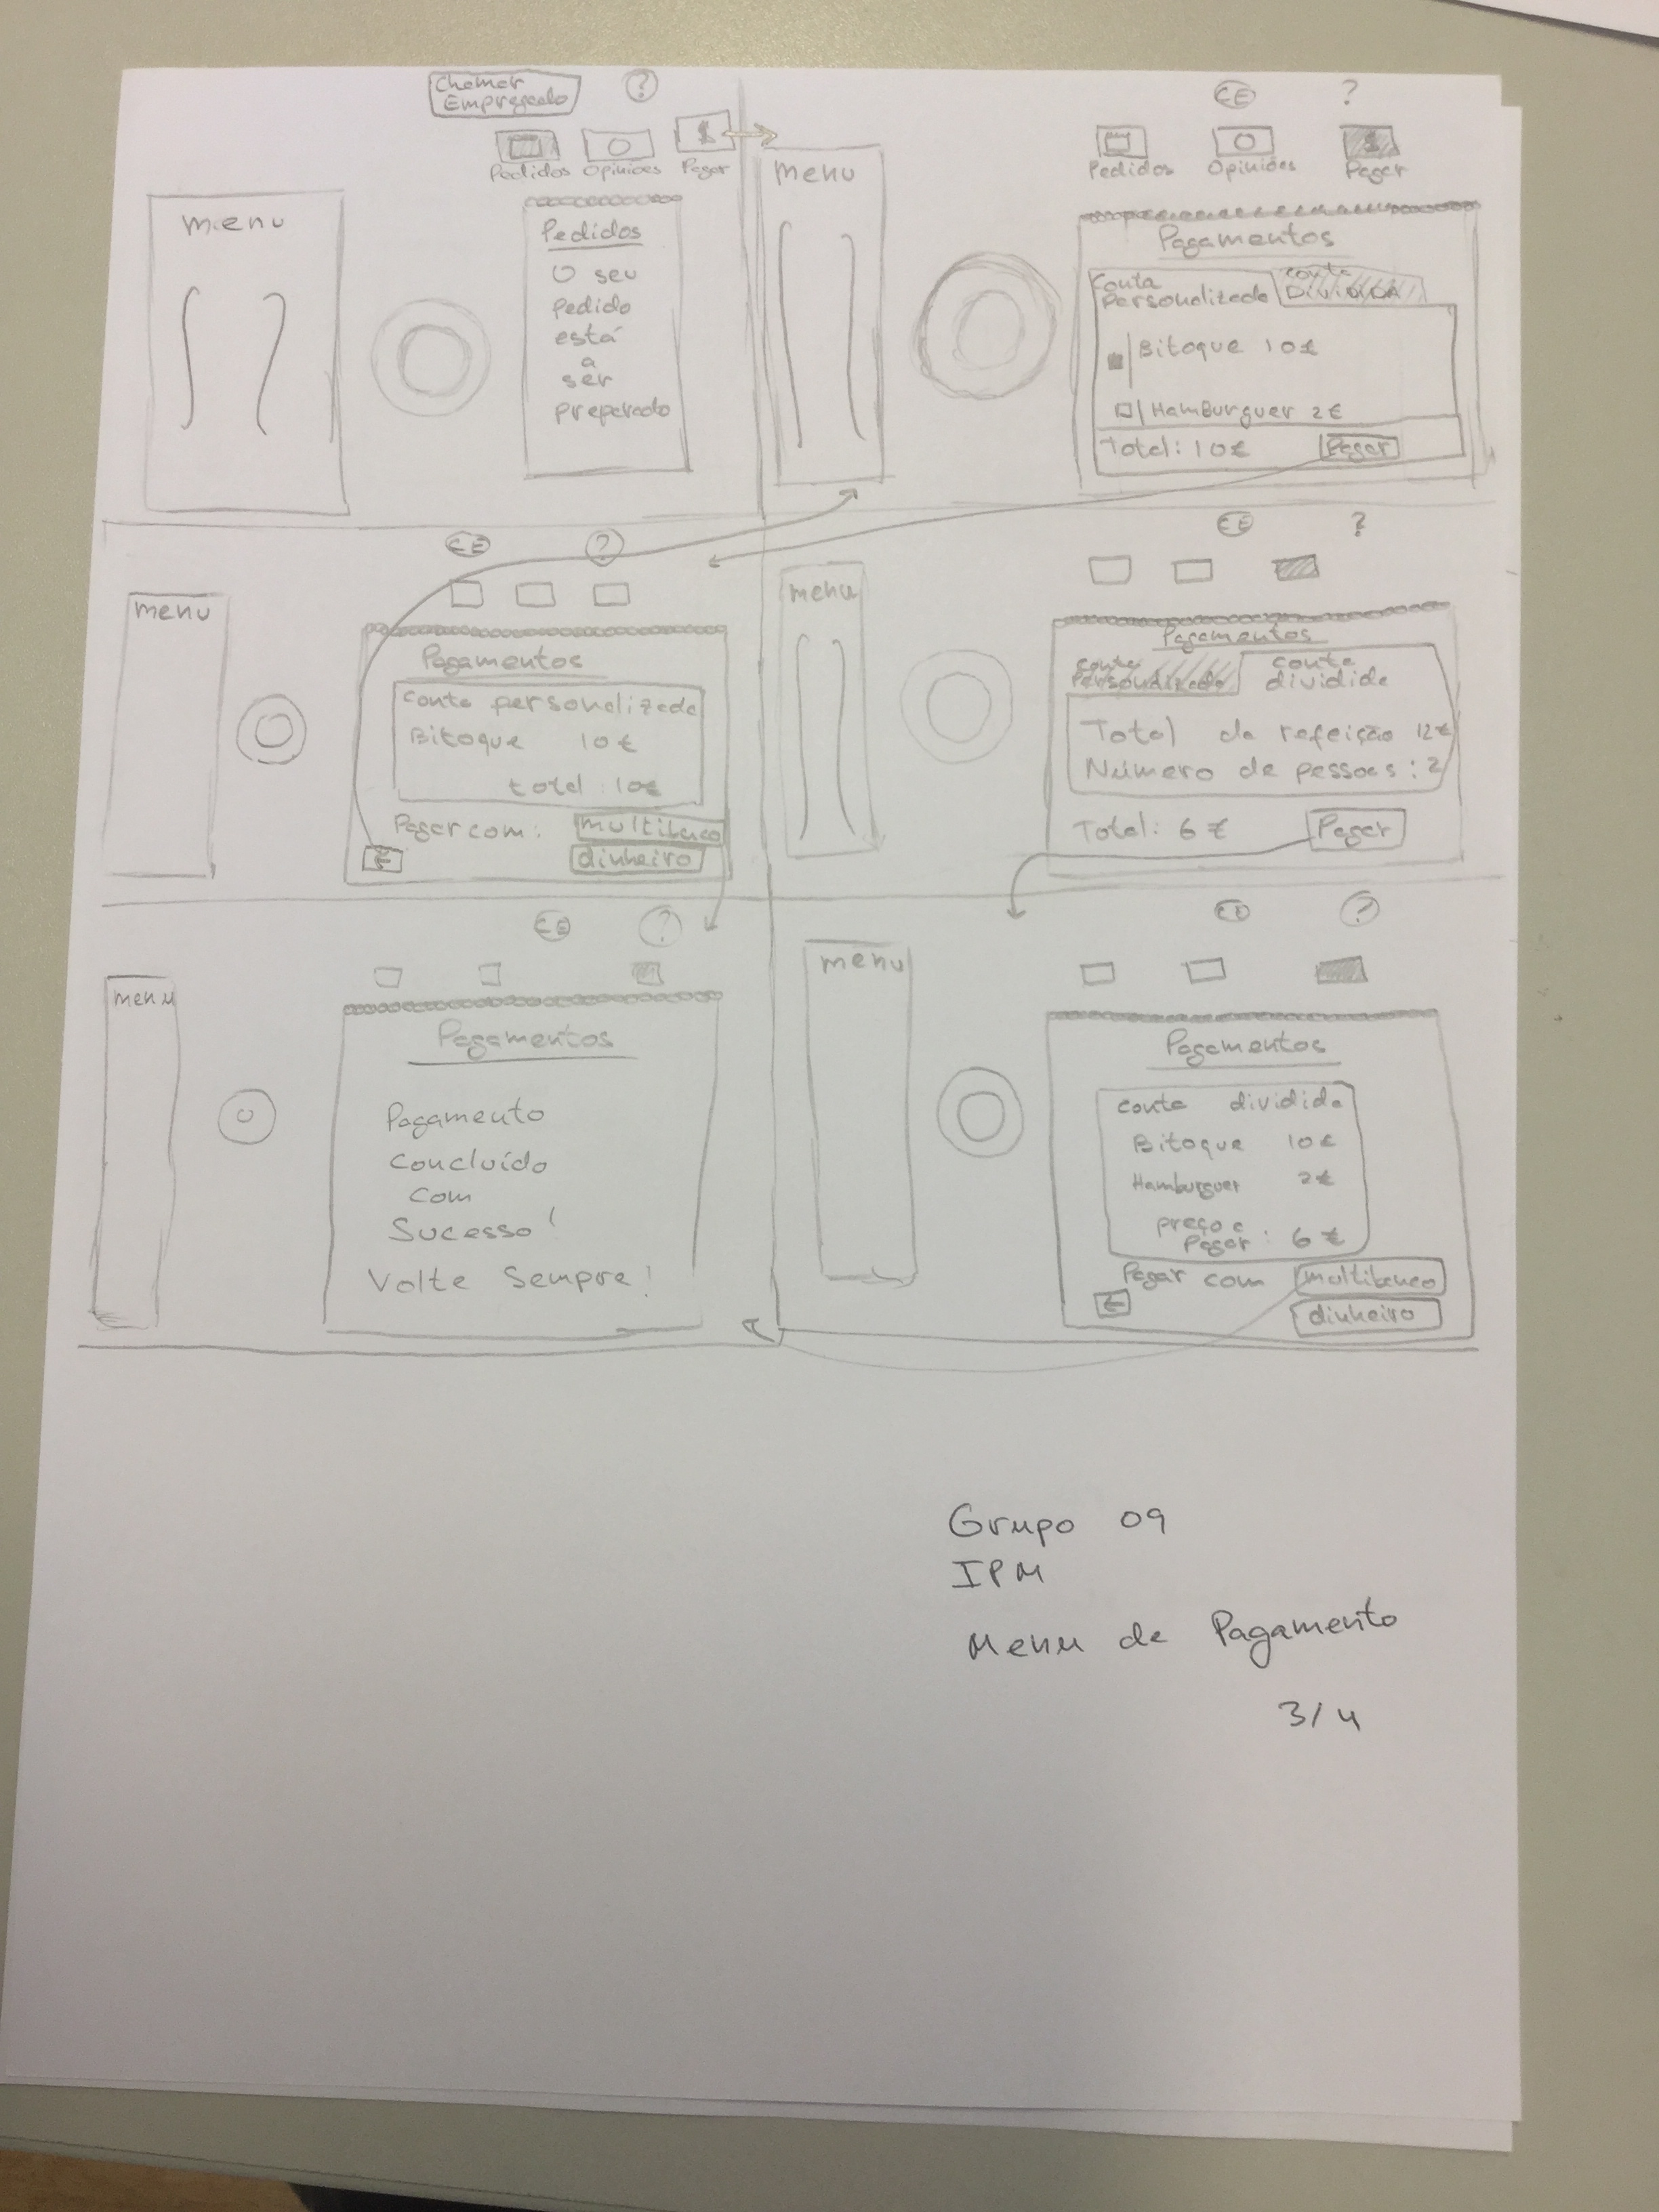 Chamar
Empregado
?
Pedidos Opiniões Pagar
menu
Pedidos
O seu
pedido
está
a
ser
preparado
CE
?
Pedidos Opiniões Pagar
menu
Pagamentos
Conta
Personalizada
Conta
DIVIDIDA
Bitoque 10€
Hamburguer 2€
Total: 10€ Pagar
CE ?
menu
Pagamentos
Conta personalizada
Bitoque 10€
total: 10€
Pagar com: multibanco
dinheiro
CE ?
menu
Pagamentos
Conta
Personalizada
conta
dividida
Total da refeição 12€
Número de pessoas: 2
Total: 6€ Pagar
CE ?
menu
Pagamentos
Pagamento
Concluído
Com
Sucesso!
Volte Sempre!
?
menu
Pagamentos
conta dividida
Bitoque 10€
Hamburguer 2€
preço a
pagar: 6€
Pagar com multibanco
dinheiro
Grupo 09
IPM
Menu de Pagamento
3/4